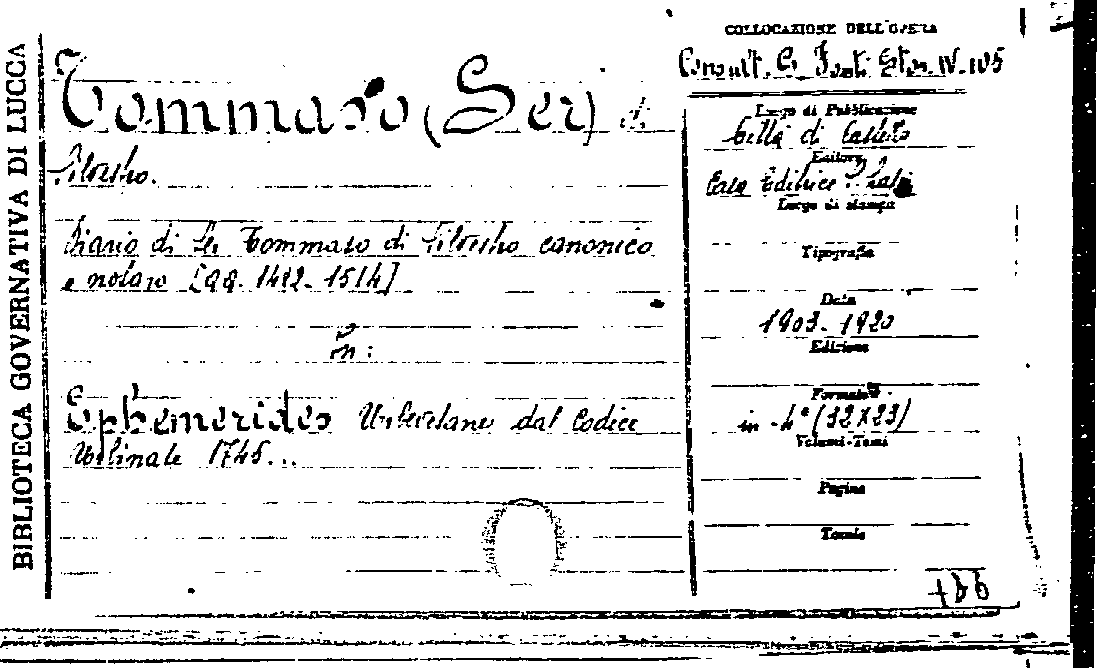 BIBLIOTECA GOVERNATIVA DI LUCCA
Tommaso (Ser) di
Silvestro.
Diario di Ser Tommaso di Silvestro canonico
e notaro [aa. 1482-1514]
In:
Ephemerides Urbevetane dal Codice
Urbinate 1745...
COLLOCAZIONE DELL'OPERA
Consult. C. Fonti Stor. IV. 105
Luogo di Pubblicazione
Città di Castello
Editore
Casa Editrice S. Lapi
Luogo di stampa
Tipografia
Data
1903-1920
Edizione
Formato
in-4° (32x23)
Volumi-Tomi
Pagine
Tavole